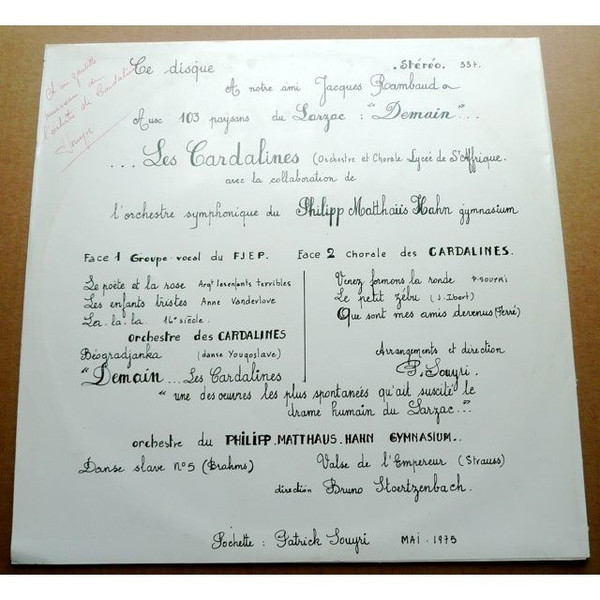 Ce disque
.Stéréo. 33t.
A notre ami Jacques Rambaud
Aux 103 paysans du Larzac : "Demain"...
... Les Cardalines (Orchestre et Chorale Lycée de St Affrique.
avec la collaboration de
l'orchestre symphonique du Philipp Matthaüs Hahn gymnasium
Face 1 Groupe vocal du F J.E P.
Le poète et la rose Argt les enfants terribles
Les enfants tristes Anne Vanderlove
La. la. la. 16e siècle.
orchestre des CARDALINES
Béogradjanka (danse Yougoslave)
"Demain ... Les Cardalines
Face 2 Chorale des CARDALINES.
Venez formons la ronde P. SOUYRI
Le petit zébu (J. Ibert)
Que sont mes amis devenus (Ferré)
Arrangements et direction
P. Souyri.
" une des oeuvres les plus spontanées qu'ait suscité le
drame humain du Larzac..."
orchestre du PHILIPP. MATTHAUS. HAHN GYMNASIUM..
Danse slave n°5 (Brahms) Valse de l'Empereur (Strauss)
direction Bruno Stoertzenbach.
Pochette : Patrick Souyri MAI . 1975